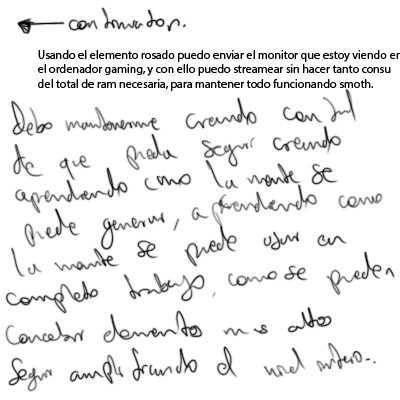 continuator.
Usando el elemento rosado puedo enviar el monitor que estoy viendo en
el ordenador gaming, y con ello puedo streamear sin hacer tanto consu
del total de ram necesaria, para mantener todo funcionando smoth.
Debo mantenerme creando con tal
de que pueda seguir creando
aprendiendo como la mente se
puede generar, aprendiendo como
la mente se puede usar en
completo trabajo, como se pueden
conectar elementos mas altos
seguir amplificando el nivel